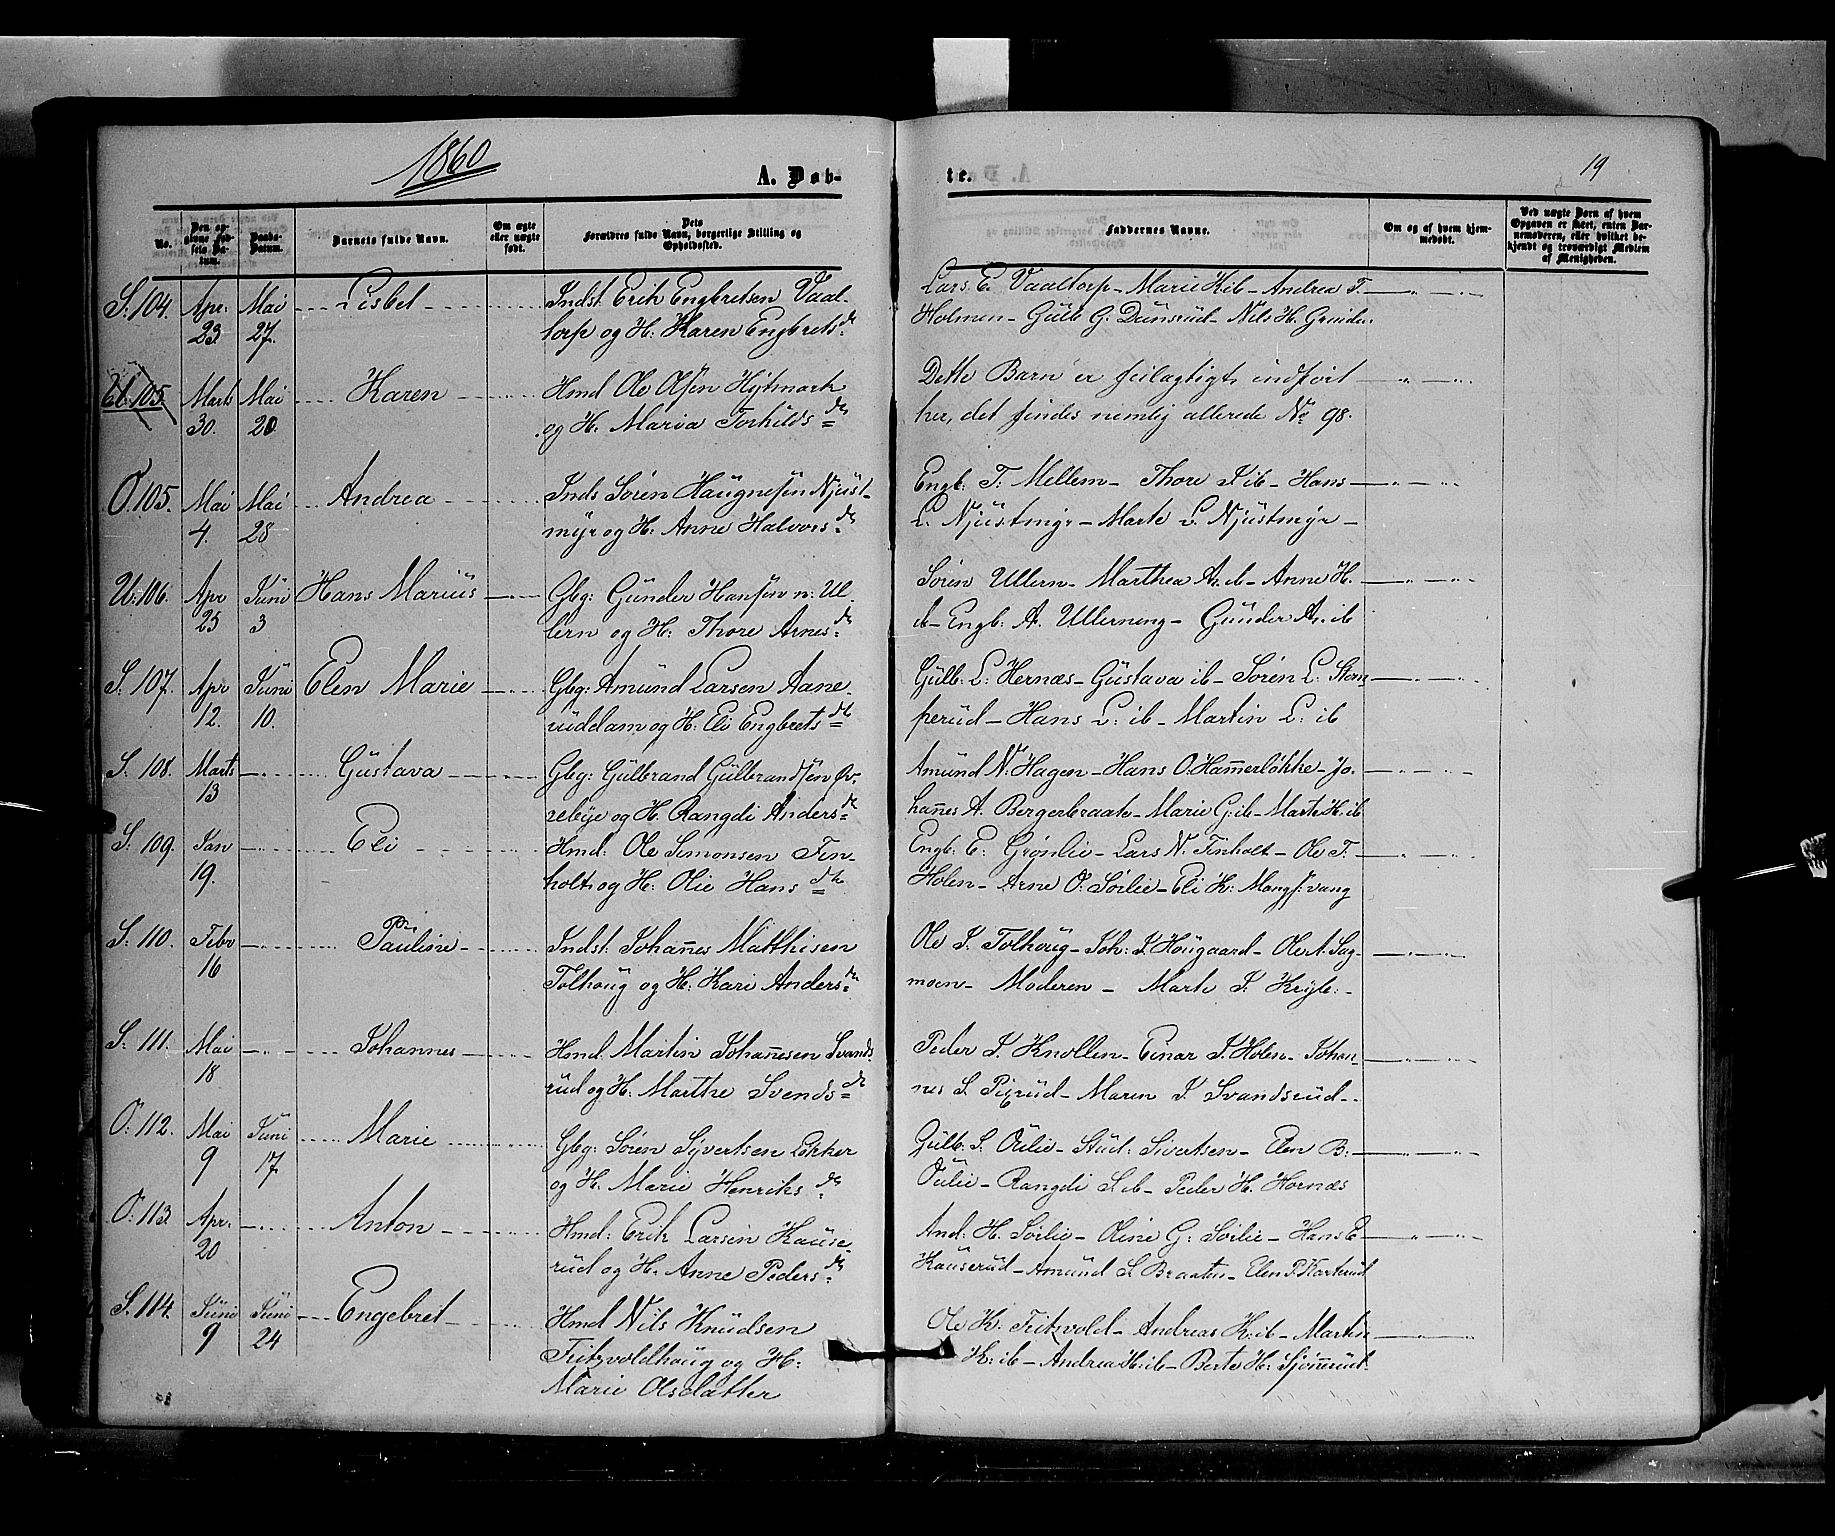 1860
A. Døb-
te.
19
No.
Den op-
givne Fød-
sels Da-
tum.
Daabs-
Datum.
Barnets fulde Navn.
Om ægte
eller uægte
født.
Dets
Forældres fulde Navn, borgerlige Stilling og
Opholdssted.
Faddernes Navne.
Om og af hvem hjem-
medøbt.
Ved uægte Børn af hvem
Opgaven er skeet, enten Bar-
nemoderen, eller hvilket be-
kjendt og troværdigt Medlem
af Menigheden.
S. 104. Apr: 23 Mai 27. Lisbet Indst. Erik Engbretsen Vaal-
torp og H: Karen Engbrets dr
Lars E. Vaaltorp - Marie K ib - Andrea T.
Holmen - Gulb G. Dunsrud - Nils H. Grinder
105 Marts 30. Mai 20 Karen Hmd Ole Olsen Hytmark
og H. Maria Torkilds dr
Dette Barn er feilagtigt indført
her, det findes nemlig allerede No 98.
O. 105. Mai 4. Mai 28 Andrea Inds Søren Haugnesen Njust-
myr og H: Anne Halvors dr
Engb: T. Mellem - Thore ib - Hans
L. Njustmyr - Marte L. Njustmyr -
U. 106. Apr 25 Juni 3 Hans Marius Gbg: Gunder Hansen n: Ul-
lern og H: Thore Arnes dr
Søren Ullern - Marthea A. ib - Anne H.
ib - Engb: A. Ullerneng - Gunder A. ib
S. 107. Apr 12. Juni 10. Elen Marie Gbg: Amund Larsen Aane-
ruddam og H: Eli Engbrets dr
Gulb: L: Hernæs - Gustava ib - Søren L: Stom-
perud - Hans L: ib - Martin L: ib
S. 108. Marts 13 Gustava Gbg: Gulbrand Gulbrandsen Øv-
rebye og H. Rangdi Anders dr
Amund N. Hagen - Hans O. Hammerløkke - Jo-
hannes A. Bergerbraate - Marie G: ib - Marte H. ib
S. 109. Jan 19. Eli Hmd: Ole Simonsen Fin-
holt og H: Olie Hans dr
Engb: E: Grønlie - Lars N. Finholt - Ole T.
Holen - Arne O: Sørlie - Eli K: Mangs: vang
S. 110. Febr 16 Pauline Indst: Johannes Matthisen
Tolhoug og H: Kari Anders dr
Ole J. Tolhoug - Joh: J. Hougaard - Ole A. Sag-
moen - Moderen - Marte J. Kryk: -
S. 111. Mai 18 Johannes Hmd. Martin Johannesen Svands-
rud og H: Marthe Svends dr
Peder J. Knollen - Einar J. Holen - Johan-
nes S. Pixrud - Maren J. Svandsrud -
O: 112. Mai 9 Juni 17. Marie Gbg: Søren Syvertsen Ekker
og H. Marie Henriks dr
Gulb: S. Oulie - Stud: Sivertsen - Elen B:
Oulie - Rangdi S. ib - Peder H. Hornæs
O: 113 Apr. 20 Anton Hmd: Erik Larsen Kause-
rud og H. Anne Peders dr
And: H. Sørlie - Oline G: Sørlie - Hans E
Kauserud - Amund S. Braaten - Elen P. Karterud
S. 114. Juni 9 Juni 24 Engebret Hmd Nils Knudsen
Fritzvoldhoug og H:
Marie Olsdatter
Ole K. Fritzvold - Andreas K: ib - Martin
K: ib - Andrea H: ib - Berte H: Sjønnrud